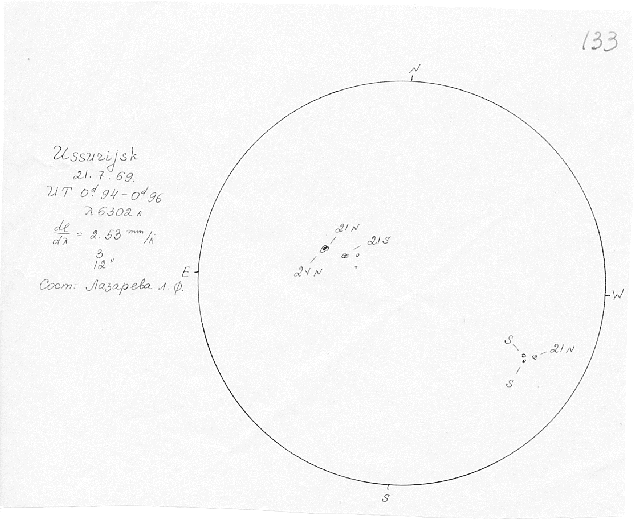 133
N
Ussurijsk
21. 7. 69.
UT 0.d 94 - 0d 96
λ 6302 Å
dl/dλ = 2.53 mm/Å
3
12"
Сост: Лазарева Л. Ф.
E
W
21N
21S
24N
S
21N
S
S